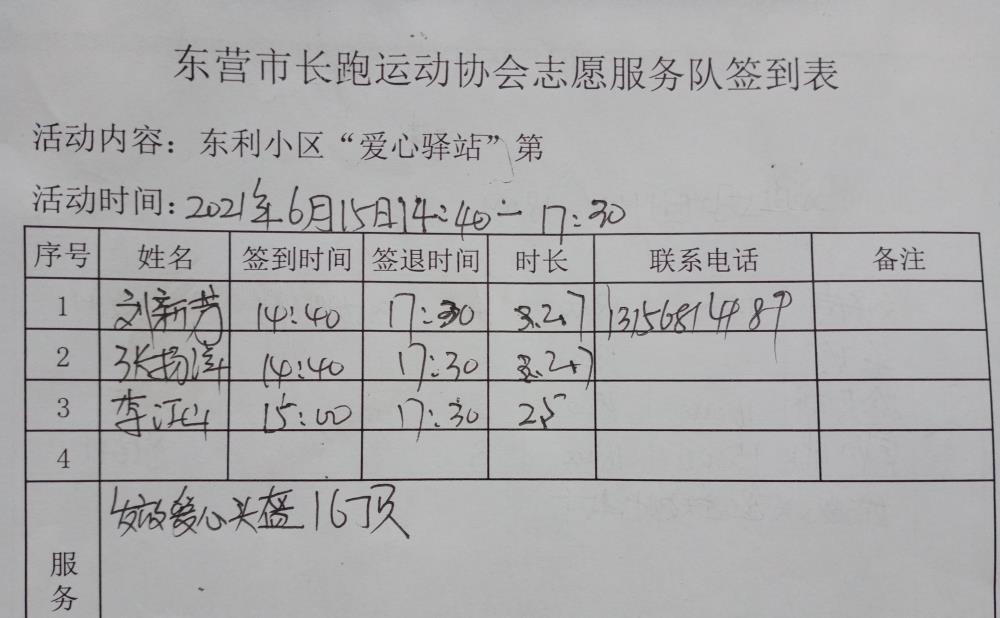 东营市长跑运动协会志愿服务队签到表
活动内容：东利小区“爱心驿站”第
活动时间：2021年6月15日14:40－17:30
序号 姓名 签到时间 签退时间 时长 联系电话 备注
1 刘新芳 14:40 17:30 2.7
2 张扬 14:40 17:30 2.7
3 李江山 15:00 17:30 2.5
4
发放爱心头盔16顶
服
务